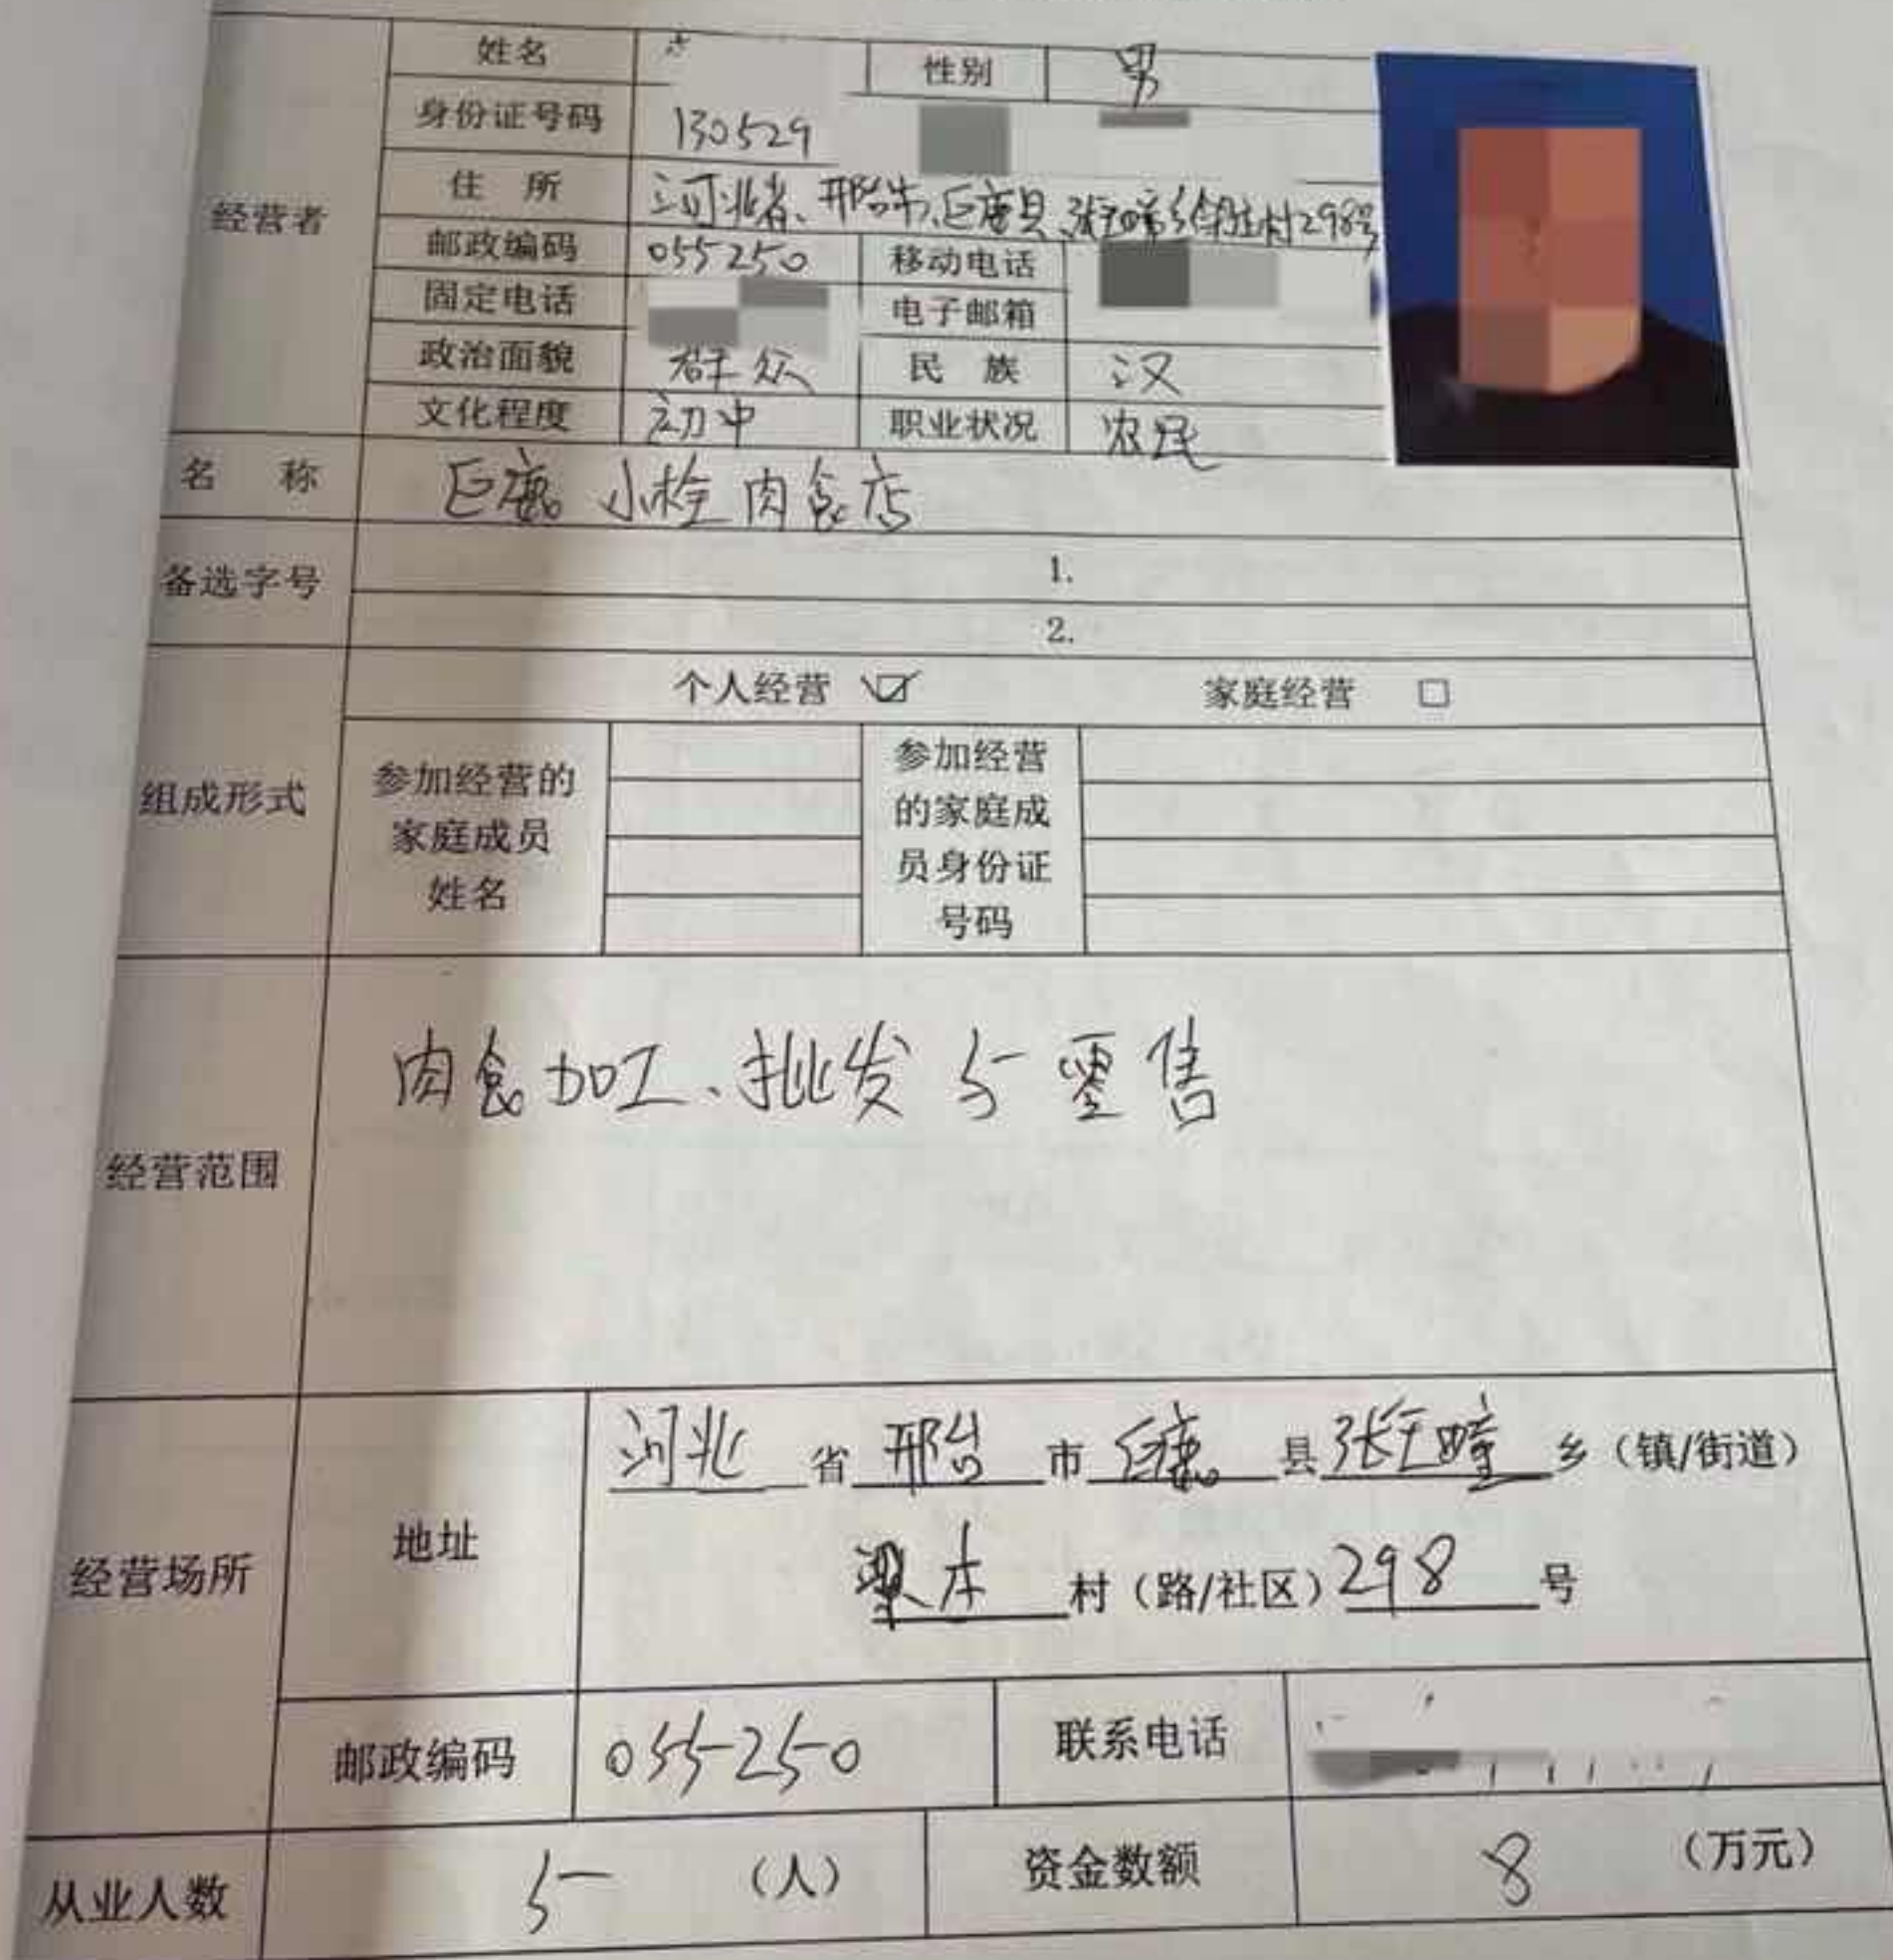 姓名 性别 男
身份证号码 130529
经营者
住 所 河北省、邢台市、巨鹿县、张王疃乡 村298号
邮政编码 055250 移动电话
固定电话 电子邮箱
政治面貌 群众 民 族 汉
文化程度 初中 职业状况 农民
名 称 巨鹿 小栓肉食店
备选字号 1.
2.
组成形式 个人经营 ☑ 家庭经营 □
参加经营的
家庭成员
姓名
参加经营
的家庭成
员身份证
号码
经营范围 肉食加工、批发与零售
经营场所 地址 河北 省 邢台 市 巨鹿 县 张王疃 乡（镇/街道）
村（路/社区）298 号
邮政编码 055250 联系电话
从业人数 5 （人） 资金数额 8 （万元）